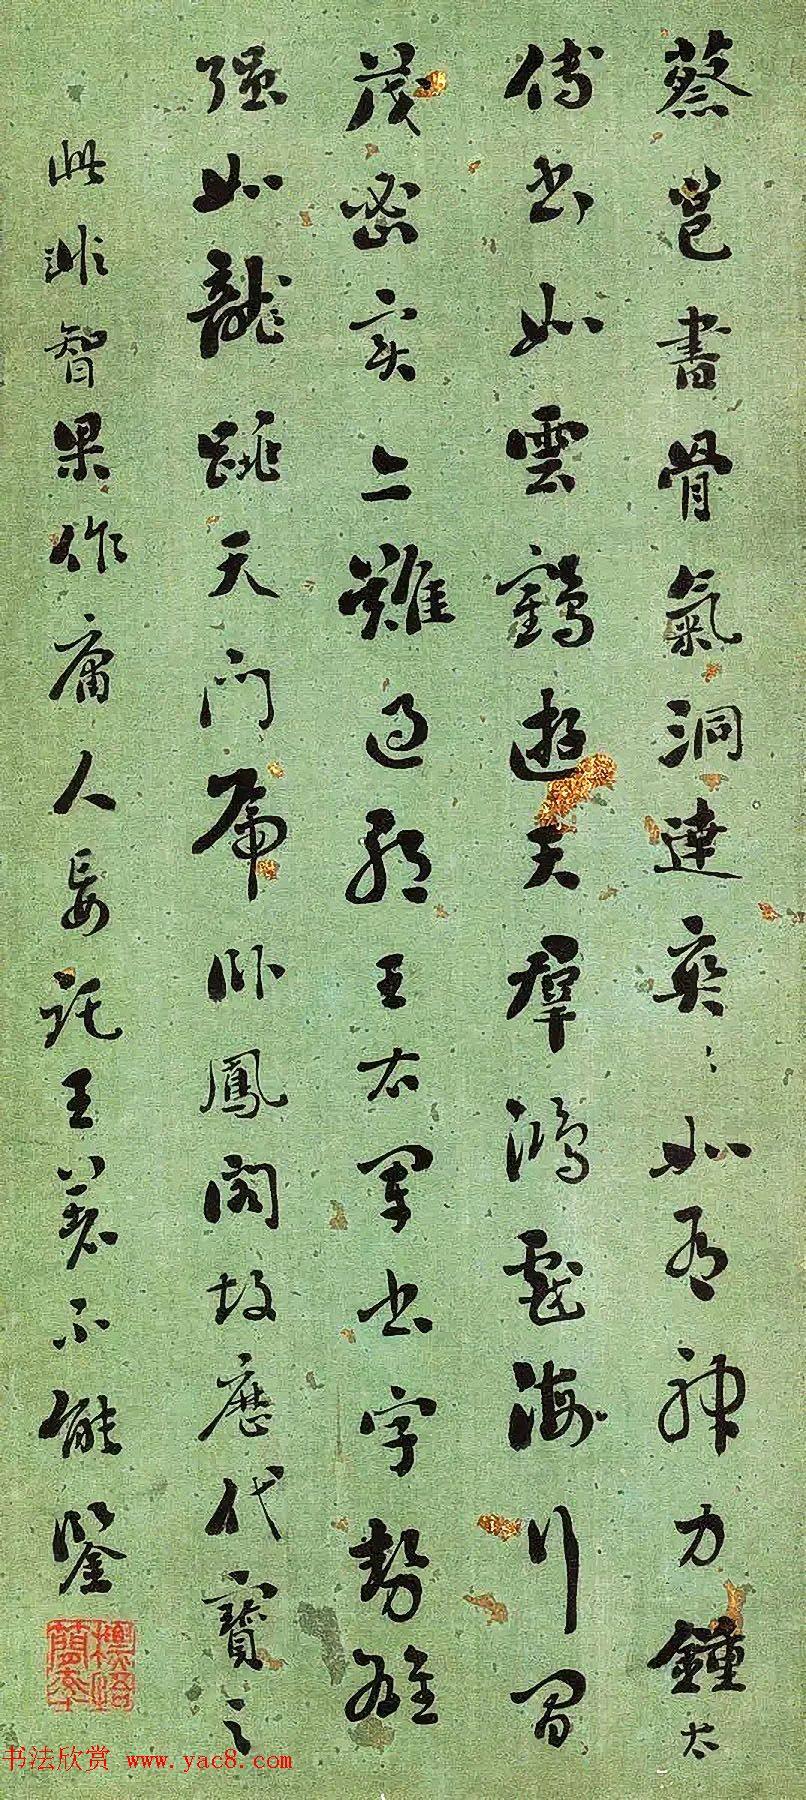 蔡邕書骨氣洞達爽〻如有神力鍾太
傅書如雲鶴遊天群鴻戲海行間
茂密實亦難過耶王右軍書字勢雄
强如龍跳天門虎卧鳳閣故歷代寶之
此非智果作庸人妄託王著不能鑒
书法欣赏 www.yac8.com